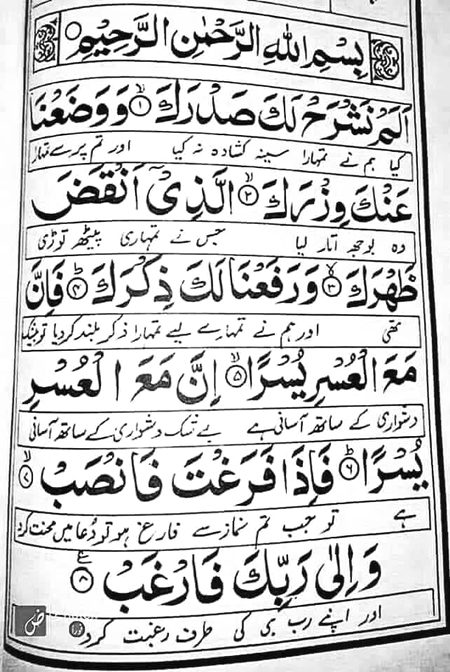 بِسْمِ اللهِ الرَّحْمٰنِ الرَّحِيْمِ
اَلَمْ نَشْرَحْ لَكَ صَدْرَكَ ۙ﴿۱﴾ وَ وَضَعْنَا
کیا ہم نے تمہارا سینہ کشادہ نہ کیا اور تم پر سے تمہارا
عَنْكَ وِزْرَكَ ۙ﴿۲﴾ الَّذِىْۤ اَنْقَضَ
وہ بوجھ اتار لیا جس نے تمہاری پیٹھ توڑی
ظَهْرَكَ ۙ﴿۳﴾ وَ رَفَعْنَا لَكَ ذِكْرَكَ ؕ﴿۴﴾ فَاِنَّ
تھی اور ہم نے تمہارے لیے تمہارا ذکر بلند کردیا تو بیشک
مَعَ الْعُسْرِ يُسْرًا ۙ﴿۵﴾ اِنَّ مَعَ الْعُسْرِ
دشواری کے ساتھ آسانی ہے بے شک دشواری کے ساتھ آسانی
يُسْرًا ؕ﴿۶﴾ فَاِذَا فَرَغْتَ فَانْصَبْ ۙ﴿۷﴾
ہے تو جب تم نماز سے فارغ ہو تو دُعا میں محنت کرو
وَ اِلٰى رَبِّكَ فَارْغَبْ ﴿۸﴾ ع
اور اپنے رب ہی کی طرف رغبت کرو
ض